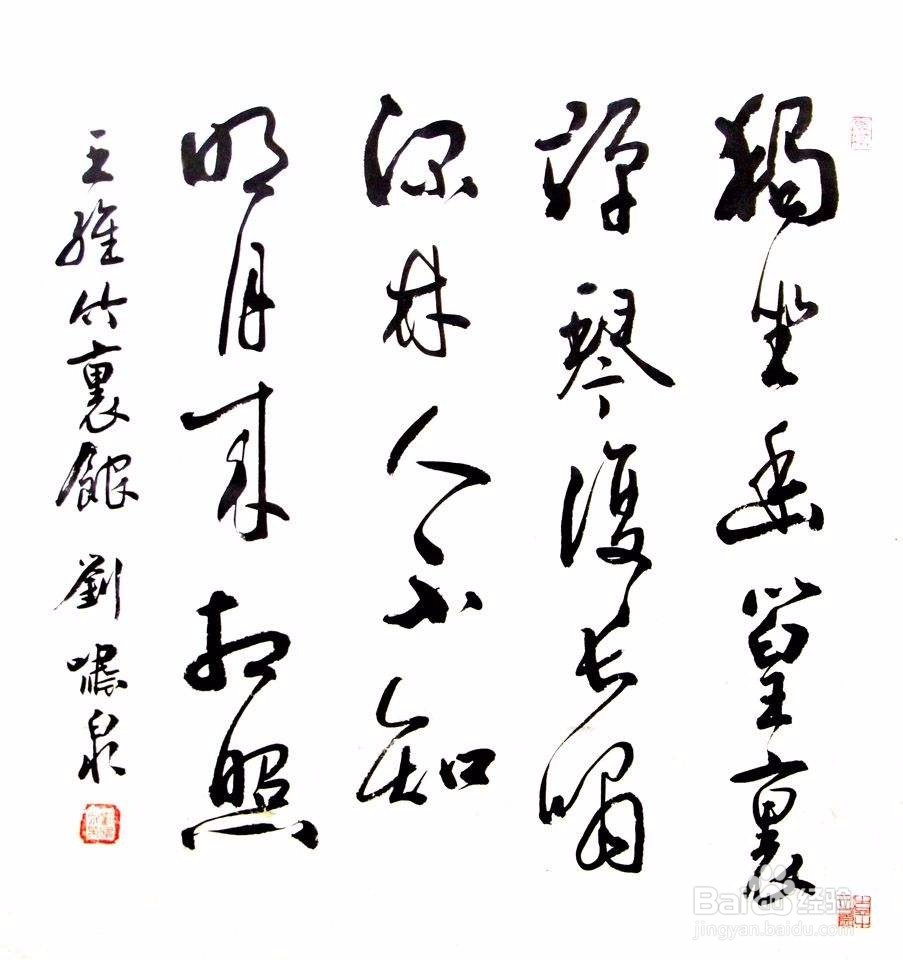 獨坐幽篁裏
彈琴復長嘯
深林人不知
明月來相照
王維竹裏館 劉 泉
Bai经验
jingyan.baidu.com